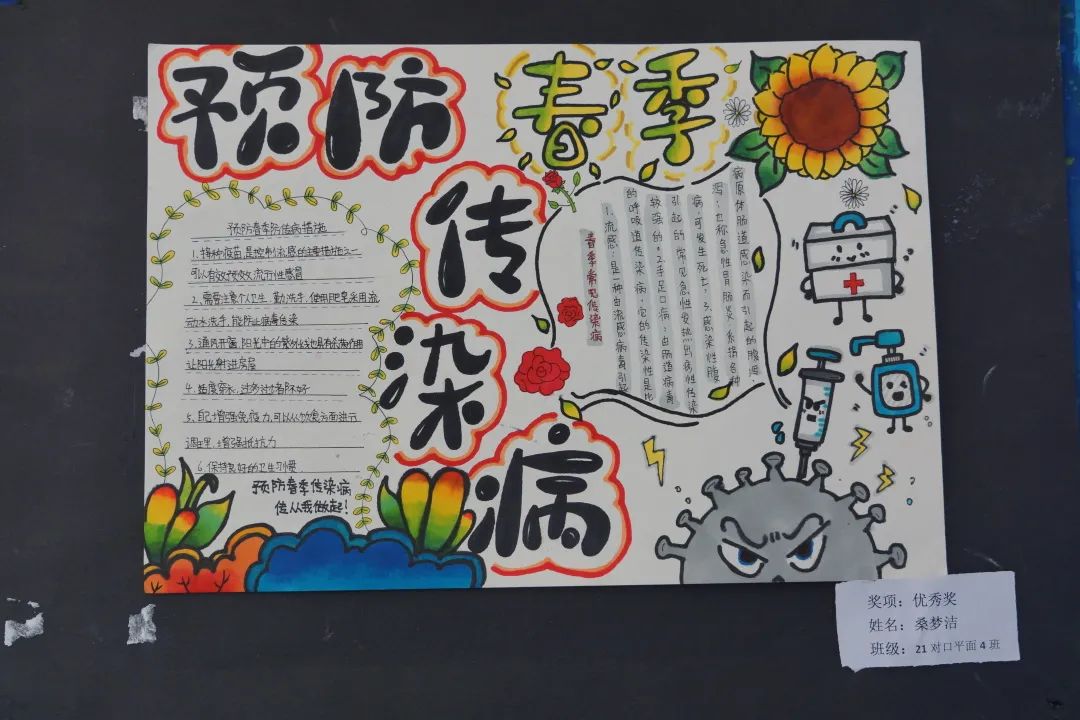 预防
春季
传
染
病
预防春季防传病措施
1.接种疫苗,是控制流感的主要措施之一
可以有效预防流行性感冒
2.需要注意个人卫生,勤洗手,使用肥皂采用流
动水洗手,能防止病毒传染
3.通风开窗,阳光中的紫外线也具有杀菌作用
让阳光射进房屋
4.适度穿衣,过多过少都不好
5.自己增强免疫力,可以从饮食方面进行
调理,增强抵抗力
6.保持良好的卫生习惯
预防春季传染病
传从我做起!
春季常见传染病
1.流感:是一种由流感病毒引起
的呼吸道传染病,它的传染性是比
较强的.2.手足口病:由肠道病毒
引起的常见急性发热出疹性传染
病,可发生死亡;3.感染性腹
泻:也称急性胃肠炎,系指各种
病原体肠道感染而引起的腹泻.
奖项:优秀奖
姓名:桑梦洁
班级:21对口平面4班